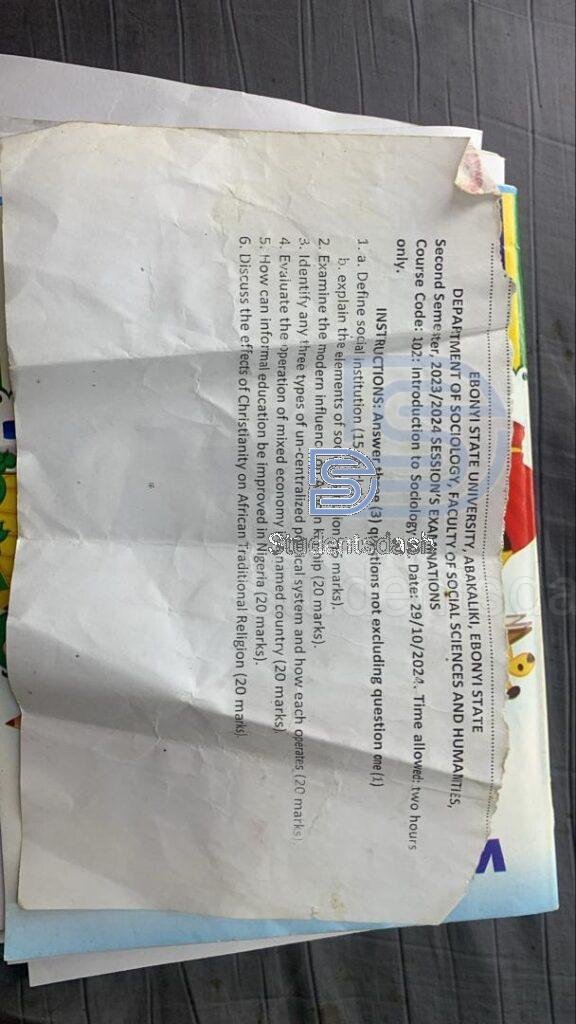 EBONYI STATE UNIVERSITY, ABAKALIKI, EBONYI STATE
DEPARTMENT OF SOCIOLOGY, FACULTY OF SOCIAL SCIENCES AND HUMANITIES,
Second Semester, 2023/2024 SESSION'S EXAMINATIONS
Course Code: 102: introduction to Sociology Date: 29/10/2024. Time allowed: two hours
only.
INSTRUCTIONS: Answer three (3) questions not excluding question one (1)
1. a. Define social institution (15
b. explain the elements of marks).
2. Examine the modern kinship (20 marks).
3. Identify any three types of un-centralized political system and how each operates (20 marks)
4. Evaluate the operation of mixed economy named country (20 marks)
5. How can informal education be improved in Nigeria (20 marks).
6. Discuss the effects of Christianity on African Traditional Religion (20 marks).
Studentsdash